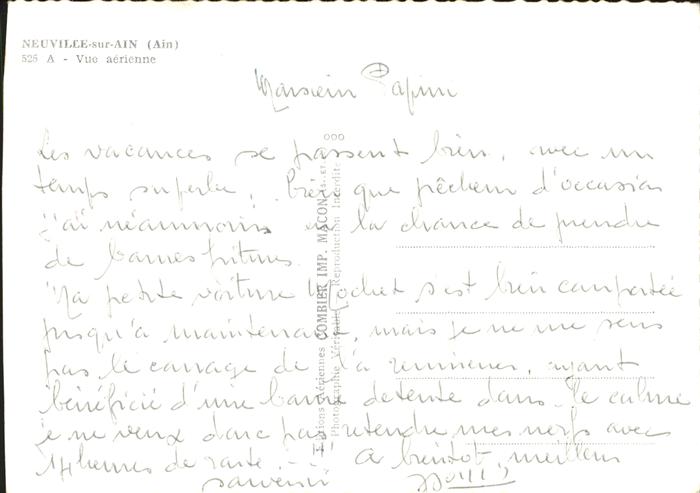 NEUVILLE-sur-AIN (Ain)
525 A - Vue aérienne
Monsieur Papini
Les vacances se passent bien, avec un
temps superbe, bien que pêcheur d'occasion
j'ai néanmoins eu la chance de prendre
de bonnes fritures.
Ma petite voiture s'est bien comportée
jusqu'à maintenant, mais je ne me sens
pas le courage de la remmener, ayant
bénéficié d'une bonne détente dans le calme
je ne veux donc pas retendre mes nerfs avec
14 heures de route. A bientôt, meilleur
souvenir
Editions aériennes COMBIER IMP. MACON
Photographie Véritable Reproduction Interdite